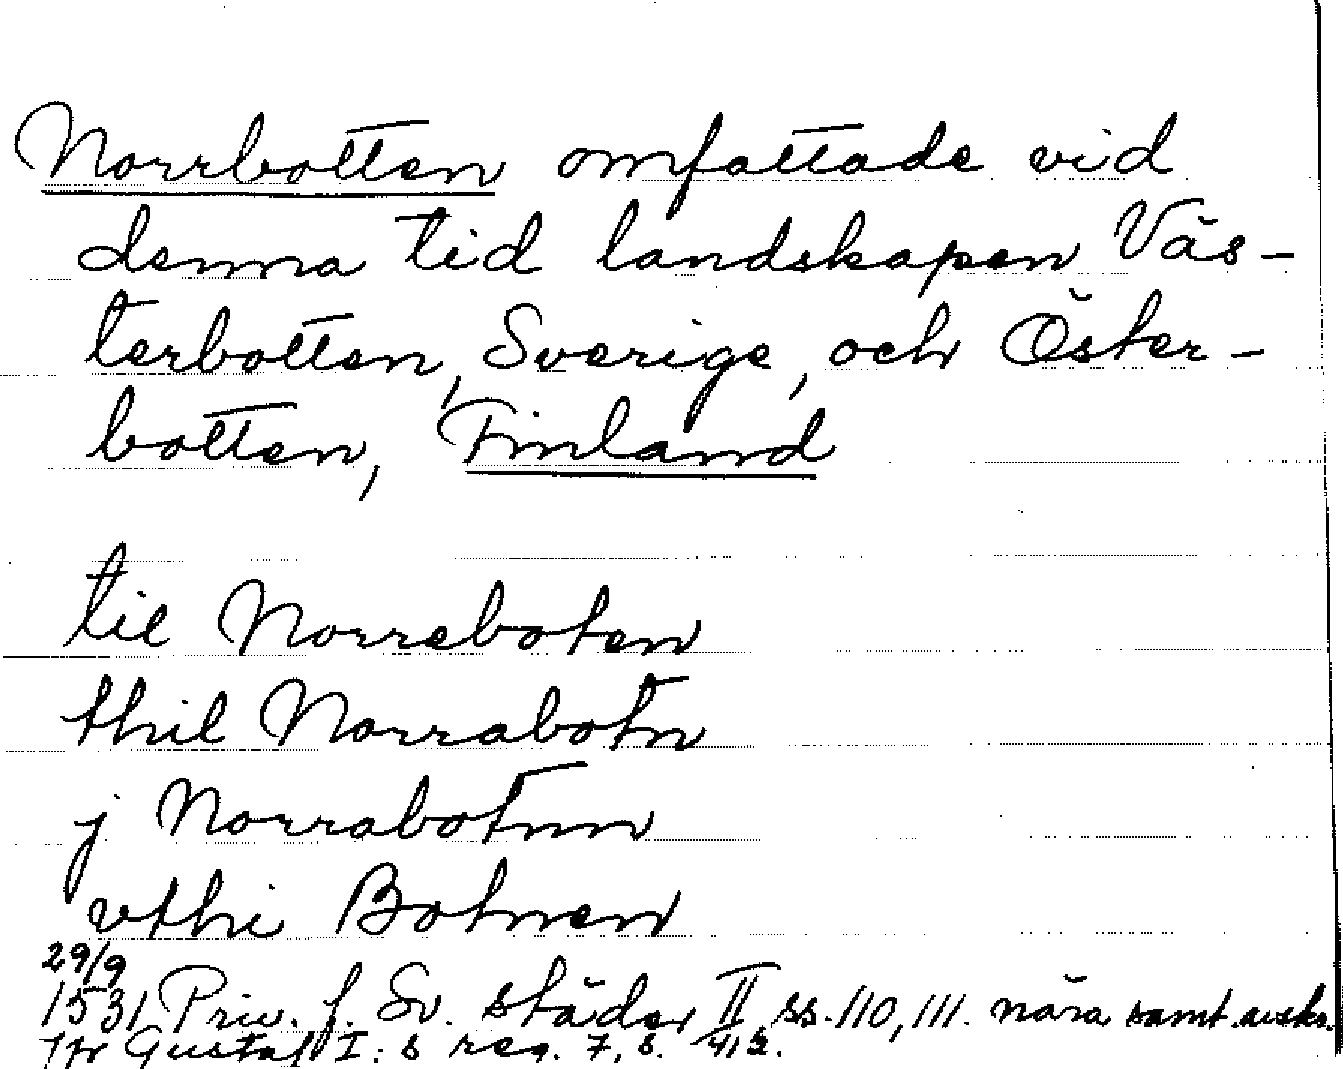 Norrbotten omfattade vid
denna tid landskapen Väs-
terbotten, Sverige, och Öster-
botten, Finland
til Norreboten
thil Norrabotn
j Norrabotnn
vthi Botnen
29/9
1531 Priv. f. Sv. städer II ss. 110, 111. nära samt avskr.
Gustaf I:s reg. 7, s. 412.